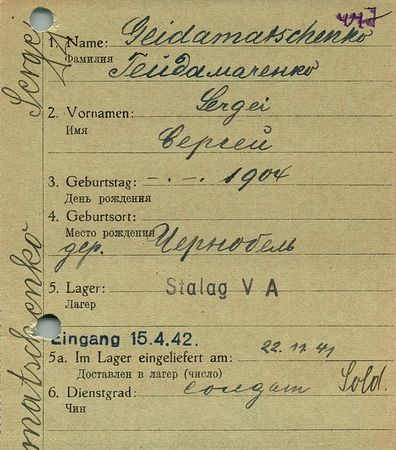 1. Name: Geidamatschenko
Фамилия Гейдамаченко
2. Vornamen: Sergei
Имя Сергей
3. Geburtstag: -.-. 1904
День рождения
4. Geburtsort:
Место рождения дер. Чернобель
5. Lager: Stalag V A
Лагерь
Eingang 15.4.42.
5a. Im Lager eingeliefert am: 22.11.41
Доставлен в лагерь (число)
6. Dienstgrad: солдат Sold.
Чин
Sergei
matschenko